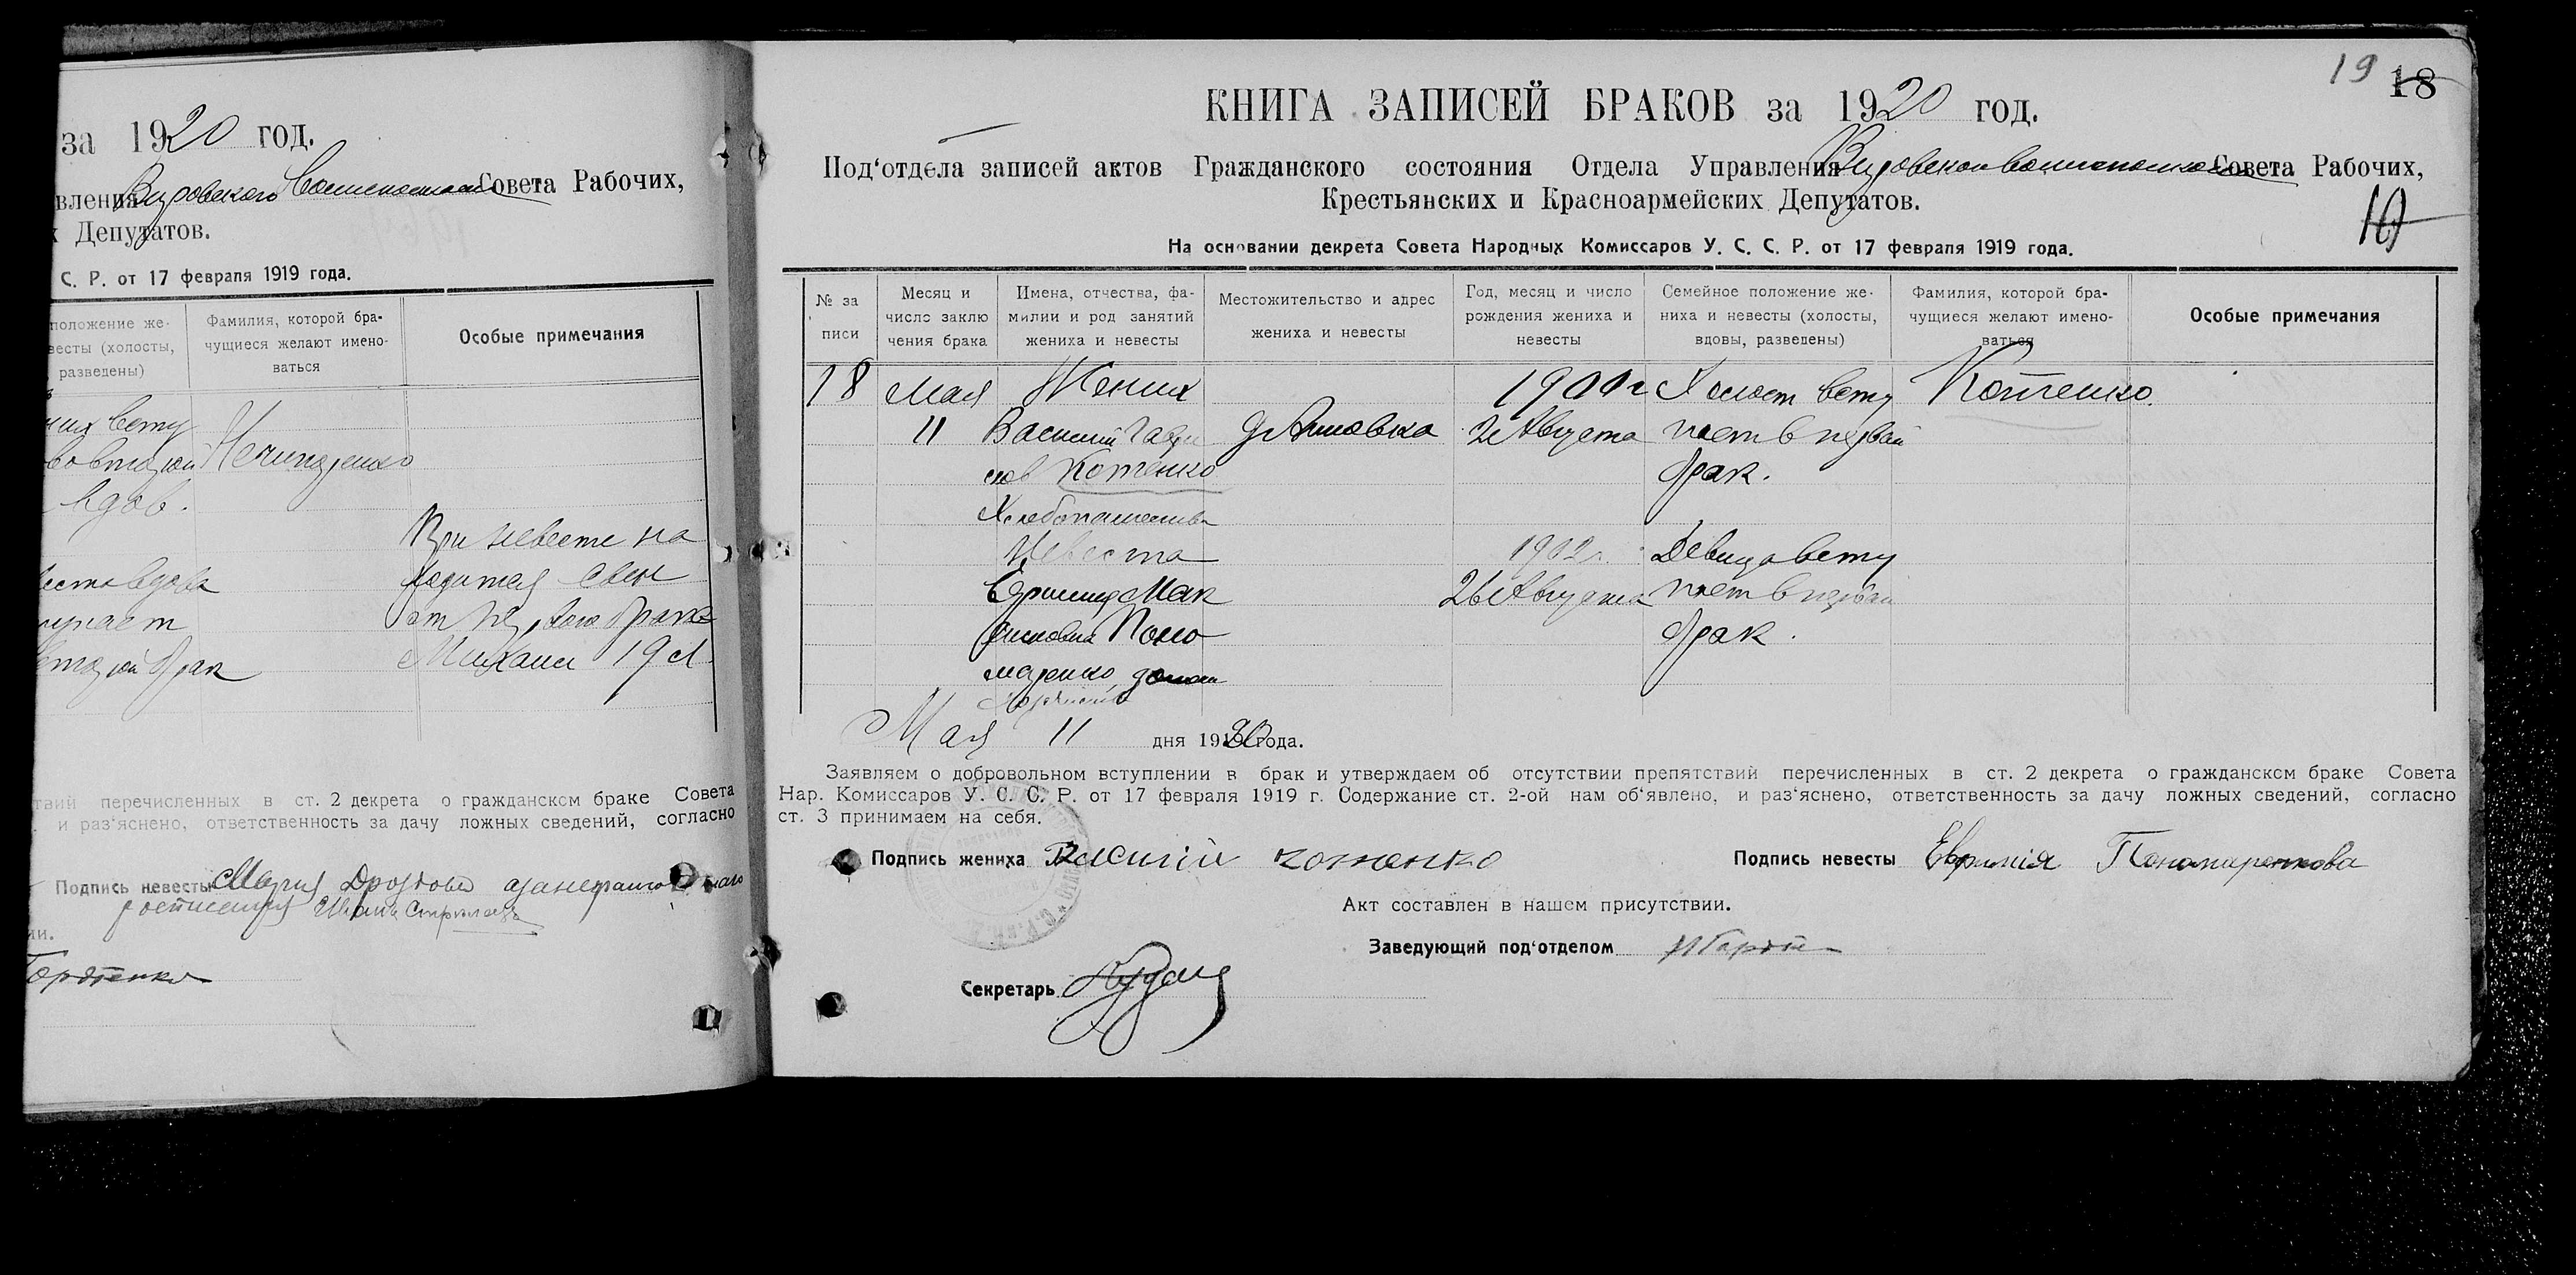 за 1920 год.
вления Вировского Совета Рабочих,
х Депутатов.
С. Р. от 17 февраля 1919 года.
положение же-
весты (холосты,
разведены)
Фамилия, которой бра-
чущиеся желают имено-
ваться
Особые примечания
них всту
во второй Нечипоренко
вдов.
При невесте на
ходится сын
веста вдова
от первого брака
упает
Михаил 19 л
второй брак
твий перечисленных в ст. 2 декрета о гражданском браке Совета
и раз'яснено, ответственность за дачу ложных сведений, согласно
Подпись невесты Мария Дроздова
ии.
Гордиенко
19 18
КНИГА ЗАПИСЕЙ БРАКОВ за 1920 год.
Под'отдела записей актов Гражданского состояния Отдела Управления Вировского Совета Рабочих,
Крестьянских и Красноармейских Депутатов.
На основании декрета Совета Народных Комиссаров У. С. С. Р. от 17 февраля 1919 года.
№ за
писи
Месяц и
число заклю
чения брака
Имена, отчества, фа-
милии и род занятий
жениха и невесты
Местожительство и адрес
жениха и невесты
Год, месяц и число
рождения жениха и
невесты
Семейное положение же-
ниха и невесты (холосты,
вдовы, разведены)
Фамилия, которой бра-
чущиеся желают имено-
ваться
Особые примечания
18 Мая Жених Холост всту Котенко.
11 Василий Гаври Августа пает в первый
лов Котенко брак.
Хлебопашество
Невеста 1902 г. Девица всту
Ефимия Мак 26 Августа пает в первый
симовна Поно брак.
маренко
Мая 11 дня 1920 года.
Заявляем о добровольном вступлении в брак и утверждаем об отсутствии препятствий перечисленных в ст. 2 декрета о гражданском браке Совета
Нар. Комиссаров У. С. С. Р. от 17 февраля 1919 г. Содержание ст. 2-ой нам об'явлено, и раз'яснено, ответственность за дачу ложных сведений, согласно
ст. 3 принимаем на себя.
Подпись жениха Василий котенко Подпись невесты Евфимія Пономаренкова
Акт составлен в нашем присутствии.
Заведующий под'отделом
Секретарь